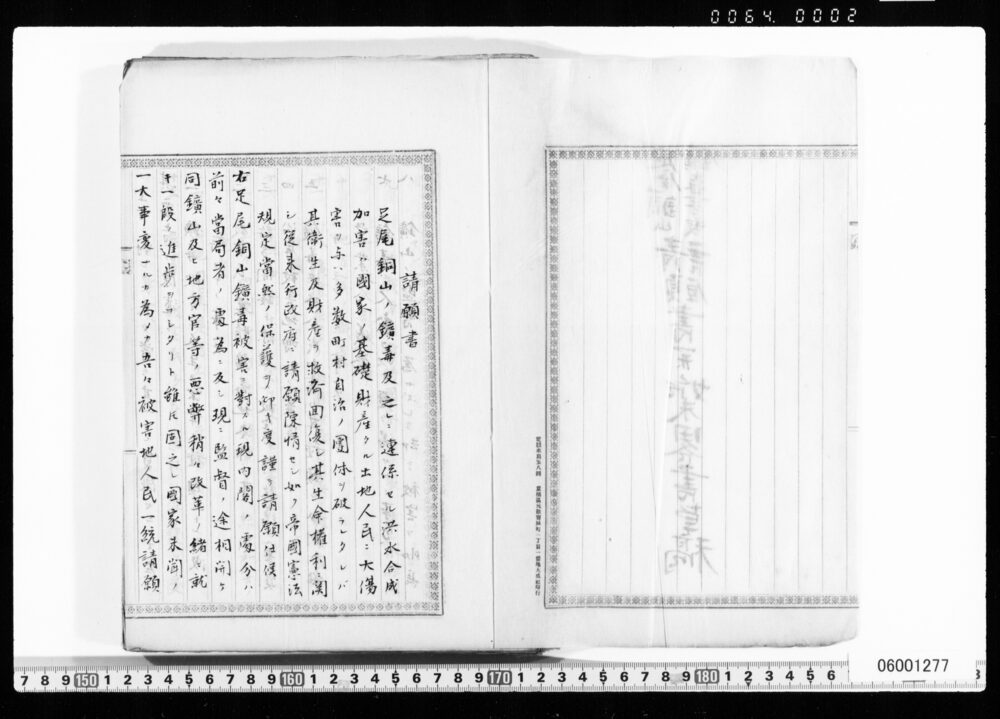 0064 0002
請願書
足尾銅山ノ鑛毒及之レニ連係セル洪水合成
加害ハ國家ノ基礎財産タル土地人民ニ大傷
害ヲ与ヘ多数町村自治ノ團体ヲ破ラレタレバ
其衛生及財産ヲ救済回復シ其生命權利ニ関
シ従来行政府ニ請願陳情セシ如ク帝國憲法
規定當然ノ保護ヲ仰キ度謹テ請願仕候
右足尾銅山鑛毒被害ニ對スル現内閣ノ處分ハ
前々當局者ノ處為ニ反シ現ニ監督ノ途相開ケ
同鑛山及ヒ地方官等ノ悪弊稍々改革ノ緒ニ就
キ一段ノ進歩ヲナシタリト雖モ固之レ國家未曽ノ
一大事変ナルカ為メ吾々被害地人民一統請願
7 8 9 150 1 2 3 4 5 6 7 8 9 160 1 2 3 4 5 6 7 8 9 170 1 2 3 4 5 6 7 8 9 180 1 2 3 4 5 6
8
06001277